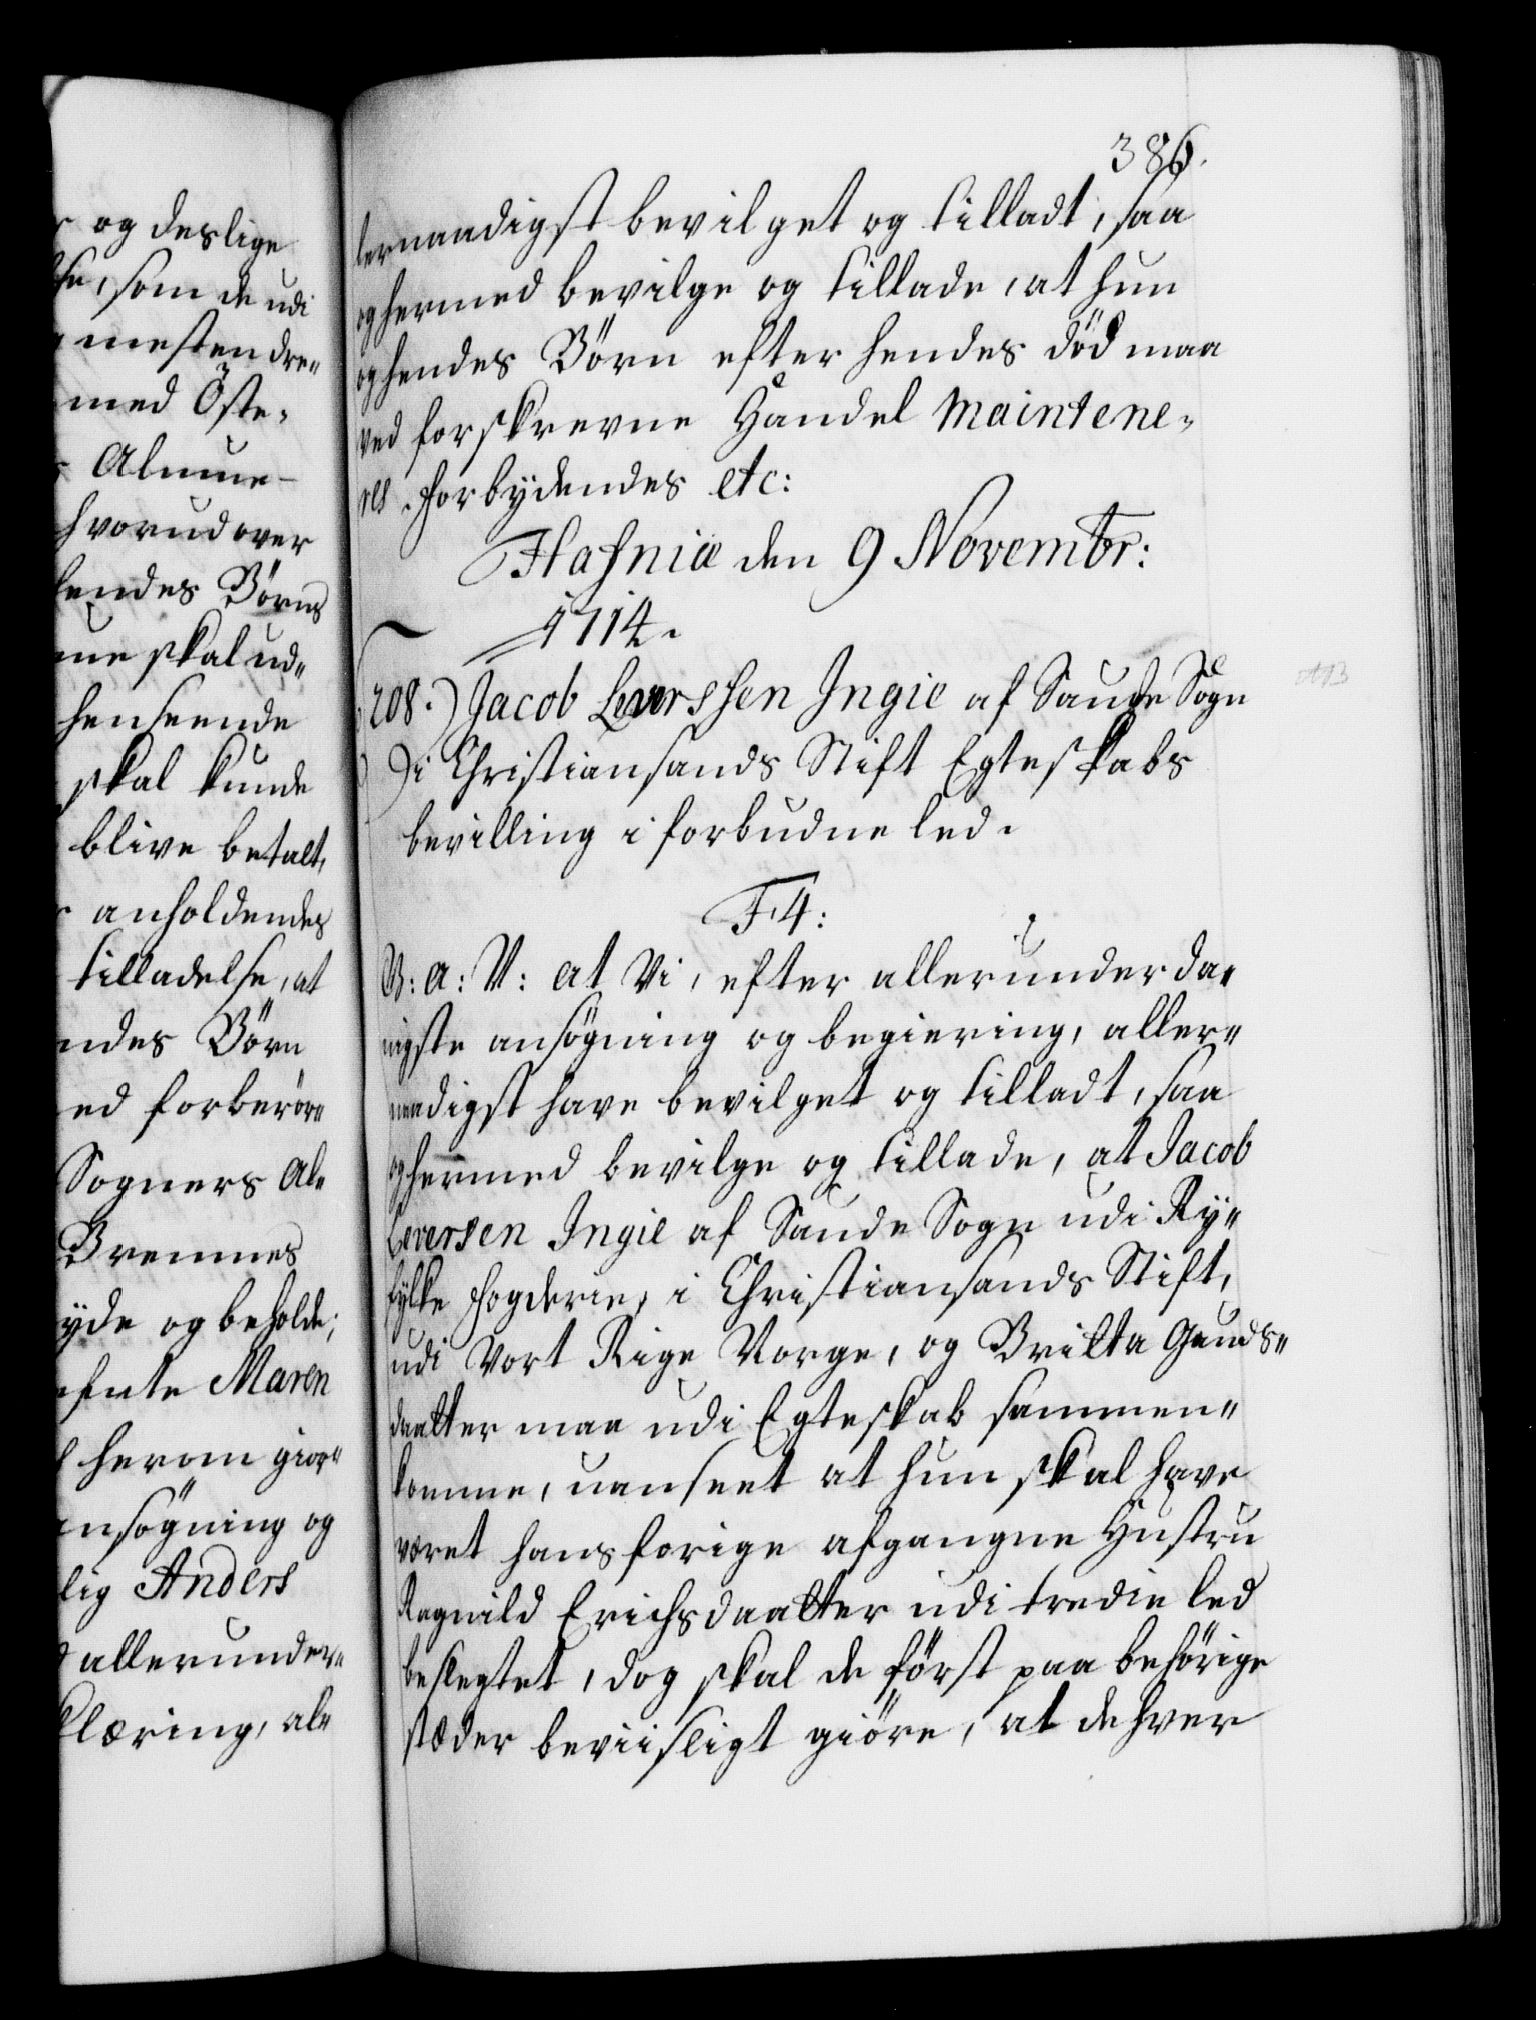 og deslige
som de udi
mesten dre„
med Öste„
Almue
hvorudover
hendes Börns
skal ud„
henseende
skal kunde
blive betalt,
anholdendes
tilladelse, at
ndes Börn
ed forberör„
Sogners Al„
Bremnes
yde og beholde;
Maren
herom giör„
nsögning og
lig Anders
allerunder„
klæring, al„
386.
lernaadigst bevilget og tilladt, saa
og hermed bevilge og tillade, at hun
og hendes Börn efter hendes död maa
ved forskrevne Handel Maintene„
res. Forbÿdendes etc:
Hafniæ den 9 Novembr:
1714.
208.) Jacob Leverssen Ingie af Saude Sogn
i Christiansands Stift Egteskabs
bevilling i forbudne led.
F4:
G: A: V: at Vi, efter allerunderda„
nigste ansögning og begiering, aller„
naadigst have bevilget og tilladt, saa
og hermed bevilge og tillade, at Jacob
Leversen Ingie af Saude Sogn udi Rÿ„
fylke Fogderie, i Christiansands Stift,
udi Vort Rige Norge, og Britta Gauds„
daatter maa udi Egteskab sammen„
komme, uanseet at hun skal have
været hans forige afgangne Hustru
Ragnild Erichsdaatter udi tredie led
beslegtet, dog skal de först paa behörige
stæder beviisligt giöre, at de hver